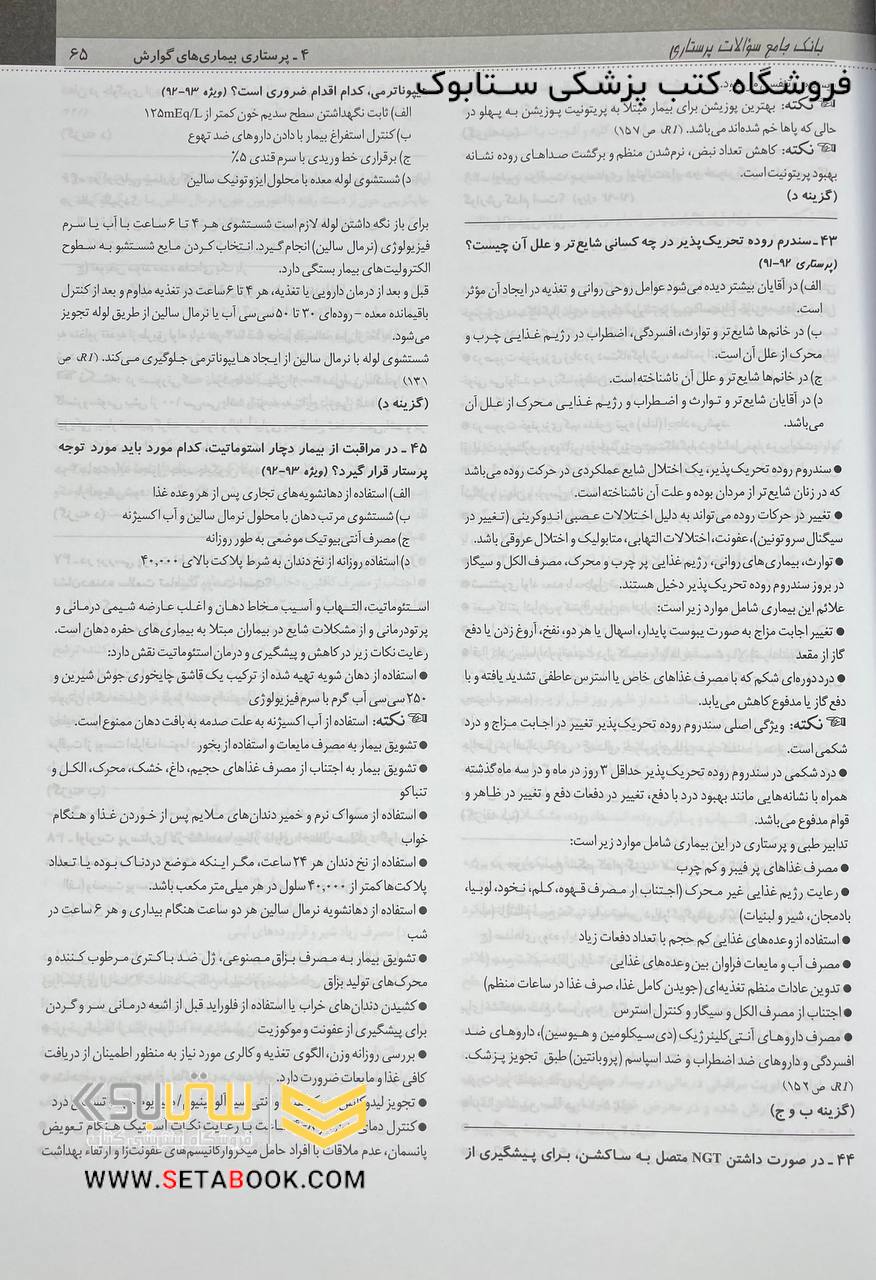 بانک جامع سؤالات پرستاری
۴ ـ پرستاری بیماری‌های گوارش
۶۵
فروشگاه کتب پزشکی ستابوک
نکته: بهترین پوزیشن برای بیمار مبتلا به پریتونیت پوزیشن به پهلو در
حالی که پاها خم شده‌اند می‌باشد. (R1، ص ۱۵۷)
نکته: کاهش تعداد نبض، نرم‌شدن منظم و برگشت صداهای روده نشانه
بهبود پریتونیت است.
(گزینه د)
۴۳ـ سندرم روده تحریک‌پذیر در چه کسانی شایع‌تر و علل آن چیست؟
(پرستاری ۹۲-۹۱)
الف) در آقایان بیشتر دیده می‌شود عوامل روحی روانی و تغذیه در ایجاد آن مؤثر
است.
ب) در خانم‌ها شایع‌تر و توارث، افسردگی، اضطراب در رژیم غذایی چرب و
محرک از علل آن است.
ج) در خانم‌ها شایع‌تر و علل آن ناشناخته است.
د) در آقایان شایع‌تر و توارث و اضطراب و رژیم غذایی محرک از علل آن
می‌باشد.
● سندروم روده تحریک‌پذیر، یک اختلال شایع عملکردی در حرکت روده می‌باشد
که در زنان شایع‌تر از مردان بوده و علت آن ناشناخته است.
● تغییر در حرکات روده می‌تواند به دلیل اختلالات عصبی اندوکرینی (تغییر در
سیگنال سروتونین)، عفونت، اختلالات التهابی، متابولیک و اختلال عروقی باشد.
● توارث، بیماری‌های روانی، رژیم غذایی پر چرب و محرک، مصرف الکل و سیگار
در بروز سندروم روده تحریک‌پذیر دخیل هستند.
علائم این بیماری شامل موارد زیر است:
● تغییر اجابت مزاج به صورت یبوست پایدار، اسهال یا هر دو، نفخ، آروغ زدن یا دفع
گاز از مقعد
● درد دوره‌ای شکم که با مصرف غذاهای خاص یا استرس عاطفی تشدید یافته و با
دفع گاز یا مدفوع کاهش می‌یابد.
نکته: ویژگی اصلی سندروم روده تحریک‌پذیر تغییر در اجابت مزاج و درد
شکمی است.
● درد شکمی در سندروم روده تحریک‌پذیر حداقل ۳ روز در ماه و در سه ماه گذشته
همراه با نشانه‌هایی مانند بهبود درد با دفع، تغییر در دفعات دفع و تغییر در ظاهر و
قوام مدفوع می‌باشد.
تدابیر طبی و پرستاری در این بیماری شامل موارد زیر است:
● مصرف غذاهای پر فیبر و کم چرب
● رعایت رژیم غذایی غیر محرک (اجتناب از مصرف قهوه، کلم، نخود، لوبیا،
بادمجان، شیر و لبنیات)
● استفاده از وعده‌های غذایی کم حجم با تعداد دفعات زیاد
● مصرف آب و مایعات فراوان بین وعده‌های غذایی
● تدوین عادات منظم تغذیه‌ای (جویدن کامل غذا، صرف غذا در ساعات منظم)
● اجتناب از مصرف الکل و سیگار و کنترل استرس
● مصرف داروهای آنتی‌کلینرژیک (دی‌سیکلومین و هیوسین)، داروهای ضد
افسردگی و داروهای ضد اضطراب و ضد اسپاسم (پروبانتین) طبق تجویز پزشک.
(R1، ص ۱۵۲)
(گزینه ب و ج)
۴۴ ـ در صورت داشتن NGT متصل به ساکشن، برای پیشگیری از
هیپوناترمی، کدام اقدام ضروری است؟ (ویژه ۹۳-۹۲)
الف) ثابت نگهداشتن سطح سدیم خون کمتر از ۱۲۵mEq/L
ب) کنترل استفراغ بیمار با دادن داروهای ضد تهوع
ج) برقراری خط وریدی با سرم قندی ۵٪
د) شستشوی لوله معده با محلول ایزوتونیک سالین
برای باز نگه داشتن لوله لازم است شستشوی هر ۴ تا ۶ ساعت با آب یا سرم
فیزیولوژی (نرمال سالین) انجام گیرد. انتخاب کردن مایع شستشو به سطوح
الکترولیت‌های بیمار بستگی دارد.
قبل و بعد از درمان دارویی یا تغذیه، هر ۴ تا ۶ ساعت در تغذیه مداوم و بعد از کنترل
باقیمانده معده – روده‌ای ۳۰ تا ۵۰ سی‌سی آب یا نرمال سالین از طریق لوله تجویز
می‌شود.
شستشوی لوله با نرمال سالین از ایجاد هایپوناترمی جلوگیری می‌کند. (R1، ص
۱۳۱)
(گزینه د)
۴۵ ـ در مراقبت از بیمار دچار استوماتیت، کدام مورد باید مورد توجه
پرستار قرار گیرد؟ (ویژه ۹۳-۹۲)
الف) استفاده از دهانشویه‌های تجاری پس از هر وعده غذا
ب) شستشوی مرتب دهان با محلول نرمال سالین و آب اکسیژنه
ج) مصرف آنتی‌بیوتیک موضعی به طور روزانه
د) استفاده روزانه از نخ دندان به شرط پلاکت بالای ۴۰,۰۰۰
استئوماتیت، التهاب و آسیب مخاط دهان و اغلب عارضه شیمی درمانی و
پرتودرمانی و از مشکلات شایع در بیماران مبتلا به بیماری‌های حفره دهان است.
رعایت نکات زیر در کاهش و پیشگیری و درمان استئوماتیت نقش دارد:
● استفاده از دهان شویه تهیه شده از ترکیب یک قاشق چایخوری جوش شیرین و
۲۵۰ سی‌سی آب گرم با سرم فیزیولوژی
نکته: استفاده از آب اکسیژنه به علت صدمه به بافت دهان ممنوع است.
● تشویق بیمار به مصرف مایعات و استفاده از بخور
● تشویق بیمار به اجتناب از مصرف غذاهای حجیم، داغ، خشک، محرک، الکل و
تنباکو
● استفاده از مسواک نرم و خمیر دندان‌های ملایم پس از خوردن غذا و هنگام
خواب
● استفاده از نخ دندان هر ۲۴ ساعت، مگر اینکه موضع دردناک بوده یا تعداد
پلاکت‌ها کمتر از ۴۰,۰۰۰ سلول در هر میلی‌متر مکعب باشد.
● استفاده از دهانشویه نرمال سالین هر دو ساعت هنگام بیداری و هر ۶ ساعت در
شب
● تشویق بیمار به مصرف بزاق مصنوعی، ژل ضد باکتری مرطوب کننده و
محرک‌های تولید بزاق
● کشیدن دندان‌های خراب یا استفاده از فلوراید قبل از اشعه درمانی سر و گردن
برای پیشگیری از عفونت و موکوزیت
● بررسی روزانه وزن، الگوی تغذیه و کالری مورد نیاز به منظور اطمینان از دریافت
کافی غذا و مایعات ضرورت دارد.
● تجویز درد
● کنترل دمای با رعایت نکات هنگام تعویض
پانسمان، عدم ملاقات با افراد حامل میکروارگانیسم‌های عفونت‌زا و ارتقاء بهداشت
ستابوک
فروشگاه اینترنتی کتاب
WWW.SETABOOK.COM